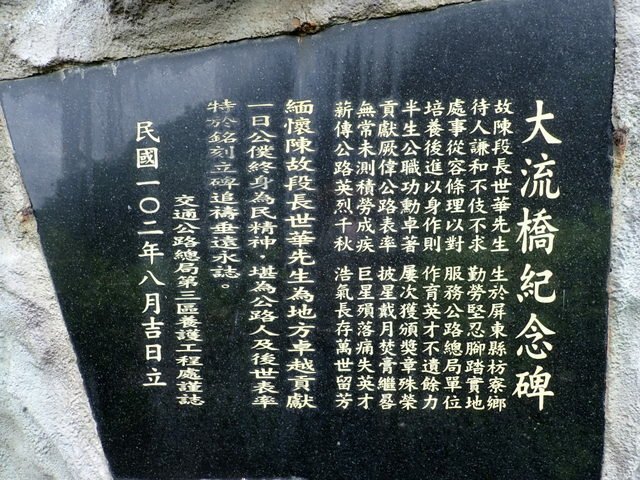 大流橋紀念碑
故陳段長世華先生 生於屏東縣枋寮鄉
待人謙和不伎不求 勤勞堅忍腳踏實地
處事從容條理以對 服務公路總局單位
培養後進以身作則 作育英才不遺餘力
半生公職功勳卓著 屢次獲頒獎章殊榮
貢獻厥偉公路表率 披星戴月焚膏繼晷
無常未測積勞成疾 巨星殞落痛失英才
薪傳公路英烈千秋 浩氣長存萬世留芳
緬懷陳故段長世華先生為地方卓越貢獻
一日公僕終身為民精神，堪為公路人及後世表率
特於銘刻立碑追禱垂遠永誌。
交通公路總局第三區養護工程處謹誌
民國一〇二年八月吉日立